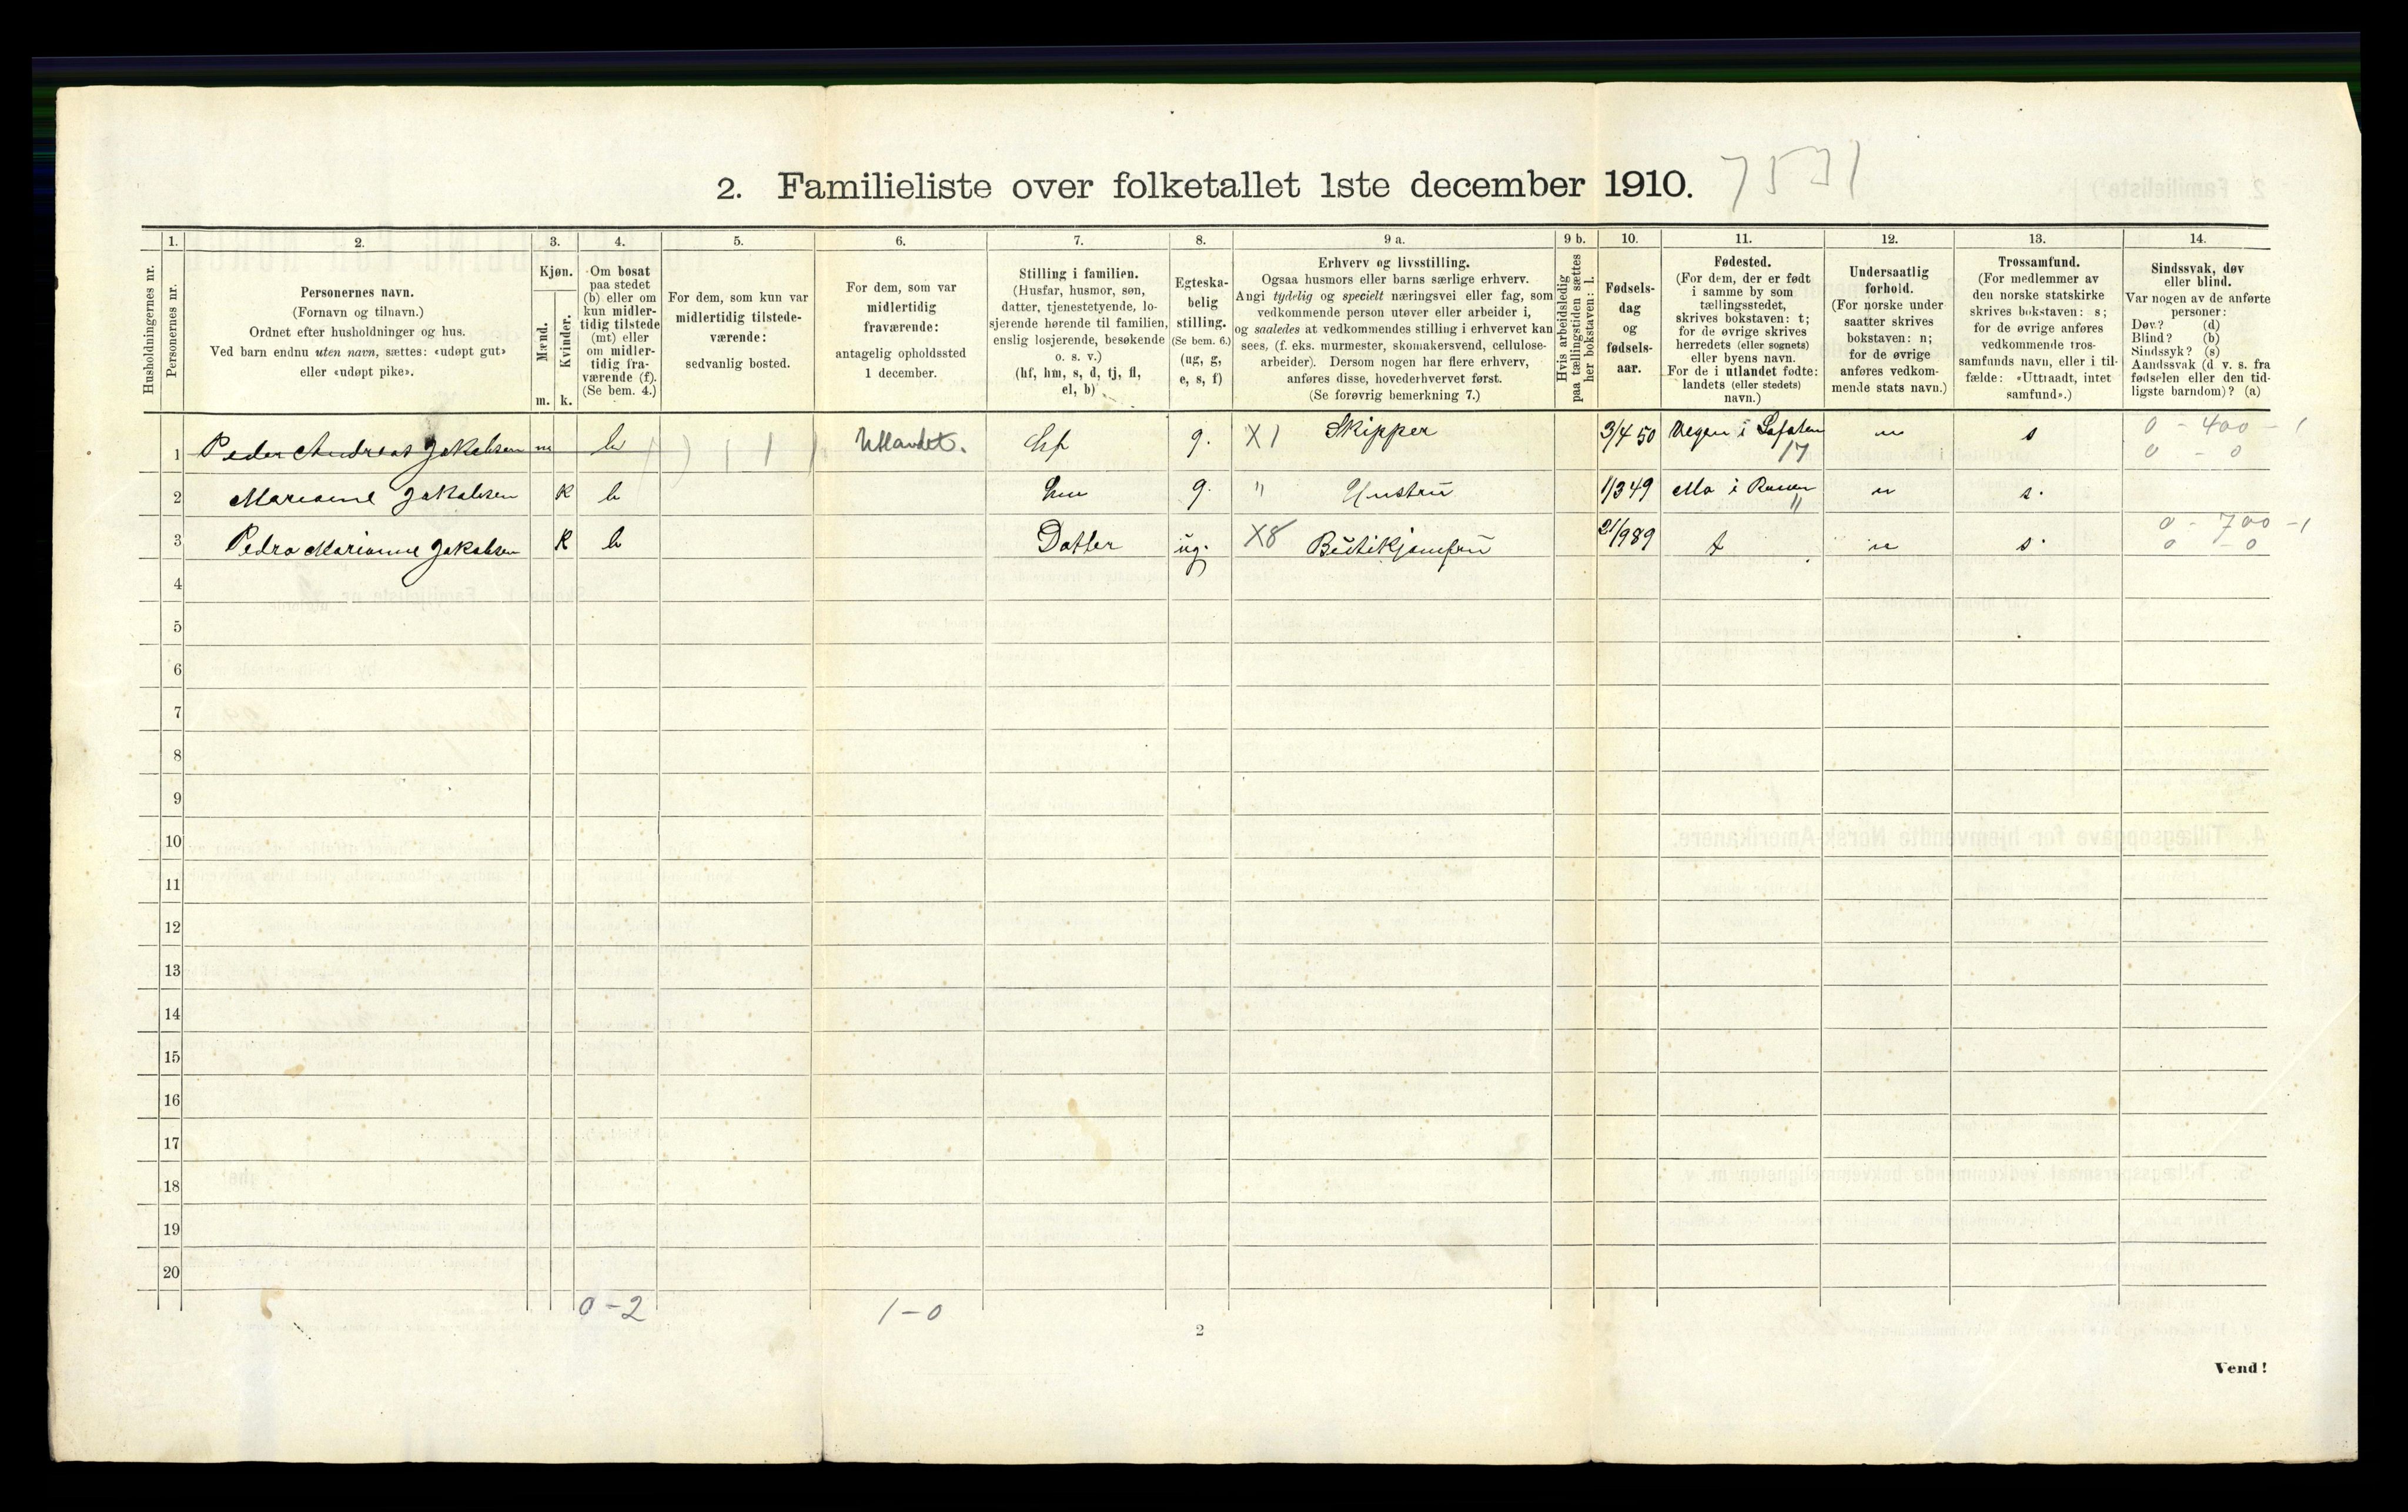 2. Familieliste over folketallet 1ste december 1910. 7531
1. 2. 3. 4. 5. 6. 7. 8. 9 a. 9 b. 10. 11. 12. 13. 14.
Husholdningernes nr.
Personernes nr.
Personernes navn.
(Fornavn og tilnavn.)
Ordnet efter husholdninger og hus.
Ved barn endnu uten navn, sættes: «udøpt gut»
eller «udøpt pike».
Kjøn.
Mænd.
Kvinder.
m. k.
Om bosat
paa stedet
(b) eller om
kun midler-
tidig tilstede
(mt) eller
om midler-
tidig fra-
værende (f).
(Se bem. 4.)
For dem, som kun var
midlertidig tilstede-
værende:
sedvanlig bosted.
For dem, som var
midlertidig
fraværende:
antagelig opholdssted
1 december.
Stilling i familien.
(Husfar, husmor, søn,
datter, tjenestetyende, lo-
sjerende hørende til familien,
enslig losjerende, besøkende
o. s. v.)
(hf, hm, s, d, tj, fl,
el, b)
Egteska-
belig
stilling.
(Se bem. 6.)
(ug, g,
e, s, f)
Erhverv og livsstilling.
Ogsaa husmors eller barns særlige erhverv.
Angi tydelig og specielt næringsvei eller fag, som
vedkommende person utøver eller arbeider i,
og saaledes at vedkommendes stilling i erhvervet kan
sees, (f. eks. murmester, skomakersvend, cellulose-
arbeider). Dersom nogen har flere erhverv,
anføres disse, hovederhvervet først.
(Se forøvrig bemerkning 7.)
Hvis arbeidsledig
paa tællingstiden sættes
her bokstaven: l.
Fødsels-
dag
og
fødsels-
aar.
Fødested.
(For dem, der er født
i samme by som
tællingsstedet,
skrives bokstaven: t;
for de øvrige skrives
herredets (eller sognets)
eller byens navn.
For de i utlandet fødte:
landets (eller stedets)
navn.)
Undersaatlig
forhold.
(For norske under
saatter skrives
bokstaven: n;
for de øvrige
anføres vedkom-
mende stats navn.)
Trossamfund.
(For medlemmer av
den norske statskirke
skrives bokstaven: s;
for de øvrige anføres
vedkommende tros-
samfunds navn, eller i til-
fælde: «Uttraadt, intet
samfund».)
Sindssvak, døv
eller blind.
Var nogen av de anførte
personer:
Døv? (d)
Blind? (b)
Sindssyk? (s)
Aandssvak (d v. s. fra
fødselen eller den tid-
ligste barndom)? (a)
1 Peder Andreas Jakobsen m b Utlandet. hf g. X1 Skipper 3/4 50 i Lofoten n s 0 - 400 - 1
17 0 - 0
2 Marianne Jakobsen K b hm g. " Hustru 1/3 49 Mo i Ranen n s.
"
3 Pedra Marianne Jakobsen K b Datter ug. X8 Butikjomfru 21/9 89 t n s. 0 - 700 - 1
0 - 0
4
5
6
7
8
9
10
11
12
13
14
15
16
17
18
19
20
0 - 2 1 - 0
2
Vend!